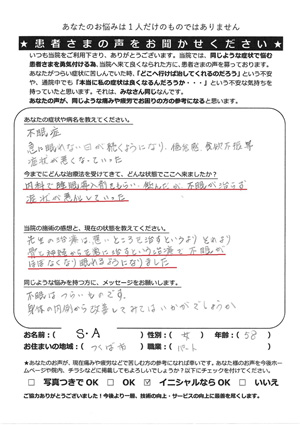 あなたのお悩みは1人だけのものではありません
★患者さまの声をお聞かせください★
いつも当院をご利用下さり、ありがとうございます。当院では、同じような症状で悩む
患者さまを勇気付ける為、当院へ来て良くなられた方に、患者さまの声を募っております。
あなたがつらい症状に苦しんでいた時、「どこへ行けば治してくれるのだろう」という不安
や、通院中でも「本当に私の症状は良くなるんだろうか・・・」という不安な気持ちを
持っていたと思います。それは、みなさん同じなんです。
あなたの声が、同じような痛みや疲労でお困りの方の参考になると思います。
あなたの症状や病名を教えてください。
不眠症
急に眠れない日が続くようになり、倦怠感、食欲不振等
症状が悪くなっていった
今までにどんな治療法を受けてきて、どんな状態でここへ来ましたか?
内科で睡眠導入剤をもらい、飲んだが不眠が治らず
症状が悪化していた
当院の施術の感想と、現在の状態を教えてください。
先生の治療は、悪いところを治すというより
神経から全体に治すという治療で不眠が
ほぼなくなり眠れるようになりました
同じような悩みを持つ方に、メッセージをお願いします。
不眠はつらいものです。
身体の内側から改善してみてはいかがでしょうか
お名前:( S・A )(性別:( 女 ) 年齢:( 58 )
お住まいの地域:( つくば市 )職業:( パート )
★あなたの声が、現在痛みや疲労などで苦しむ方の参考になれば幸いです。あなた様のお声を今後ホー
ムページや院内、チラシなどに掲載してもよろしいでしょうか?以下にチェックを付けてください。
□ 写真つきでOK □ OK ☑ イニシャルならOK □ いいえ
ご協力ありがとうございました!今後より一層、技術の向上・サービスの向上に最善を尽くします。